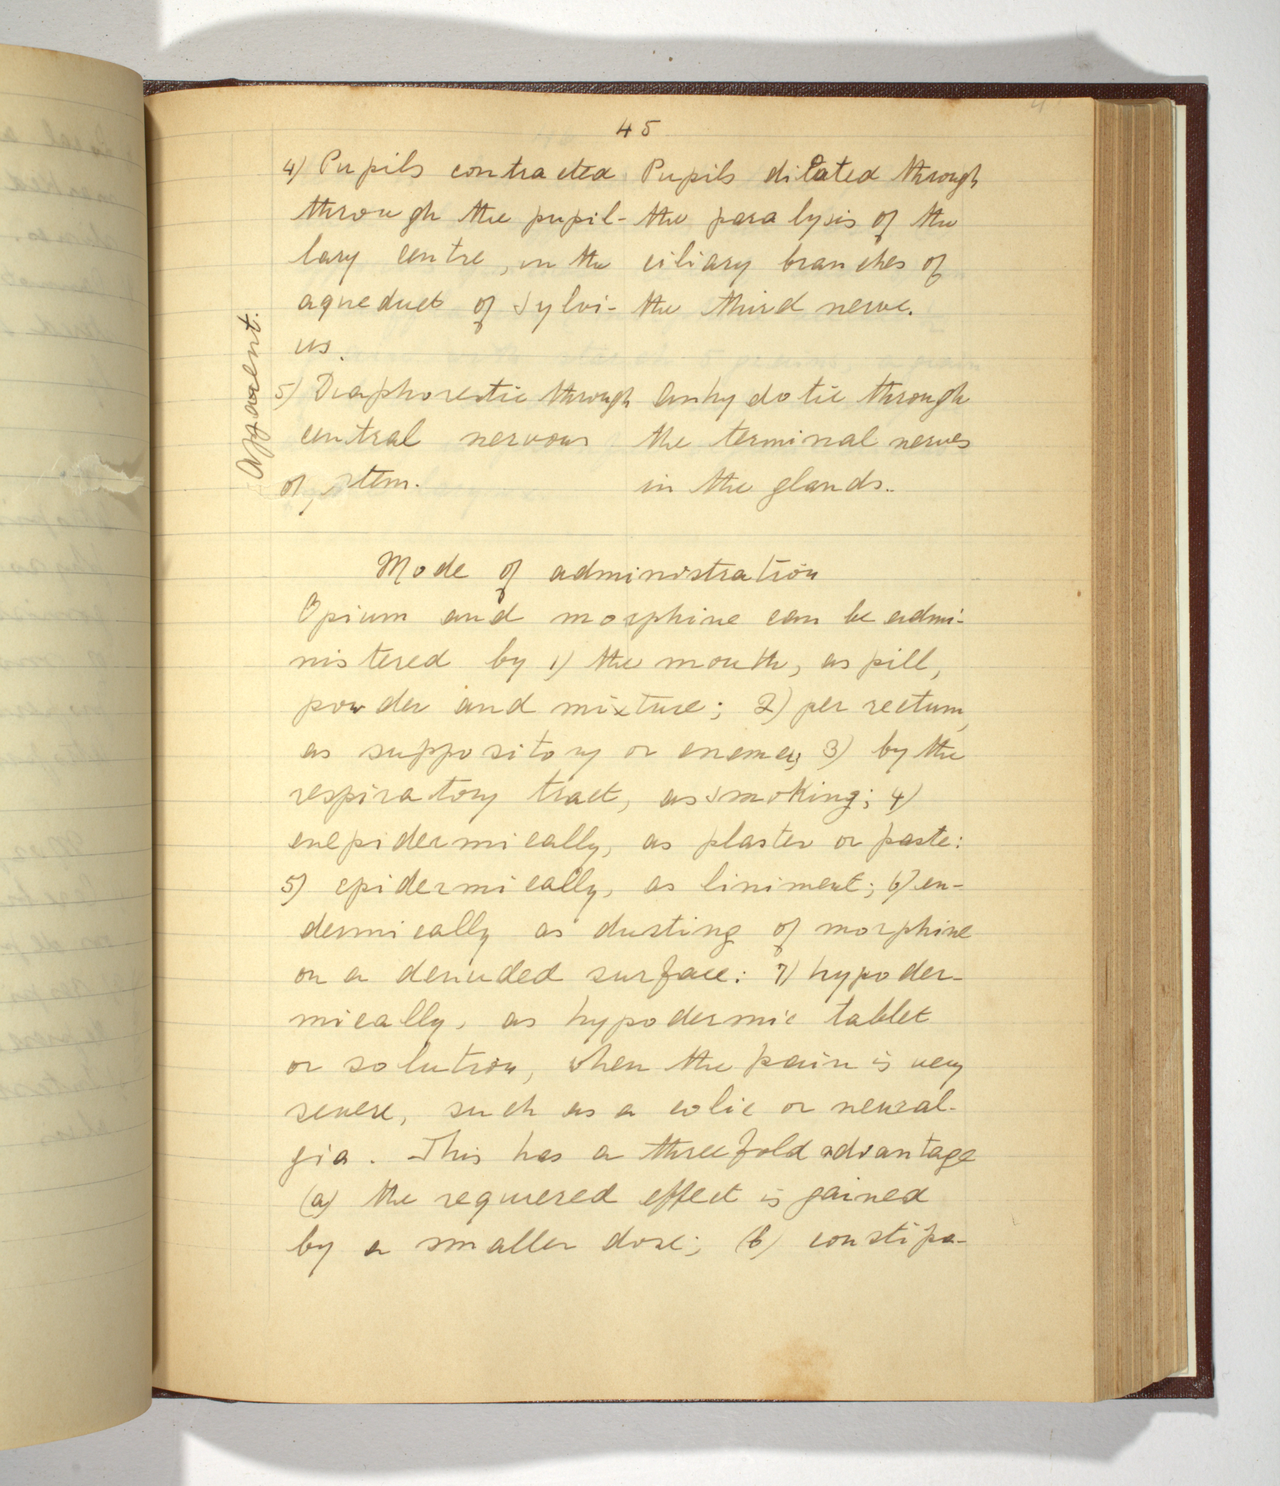 45
4) Pupils contracted Pupils dilated through
through the pupil- the paralysis of the
lary centre, in the ciliary branches of
aqueduct of Sylvi- the third nerve.
us.
Apparent.
5) Diaphoretic through Anhydotic through
central nervous the terminal nerves
system. in the glands.
Mode of administration
Opium and morphine can be admi-
nistered by 1) the mouth, as pill,
powder and mixture; 2) per rectum,
as suppository or enema; 3) by the
respiratory tract, as smoking; 4)
enepidermically, as plaster or paste:
5) epidermically, as liniment; 6) en-
dermically as dusting of morphine
on a denuded surface: 7) hypoder-
mically, as hypodermic tablet
or solution, when the pain is very
severe, such as a colic or neural-
gia. This has a threefold advantage
(a) the requiered effect is gained
by a smaller dose; (b) constipa-